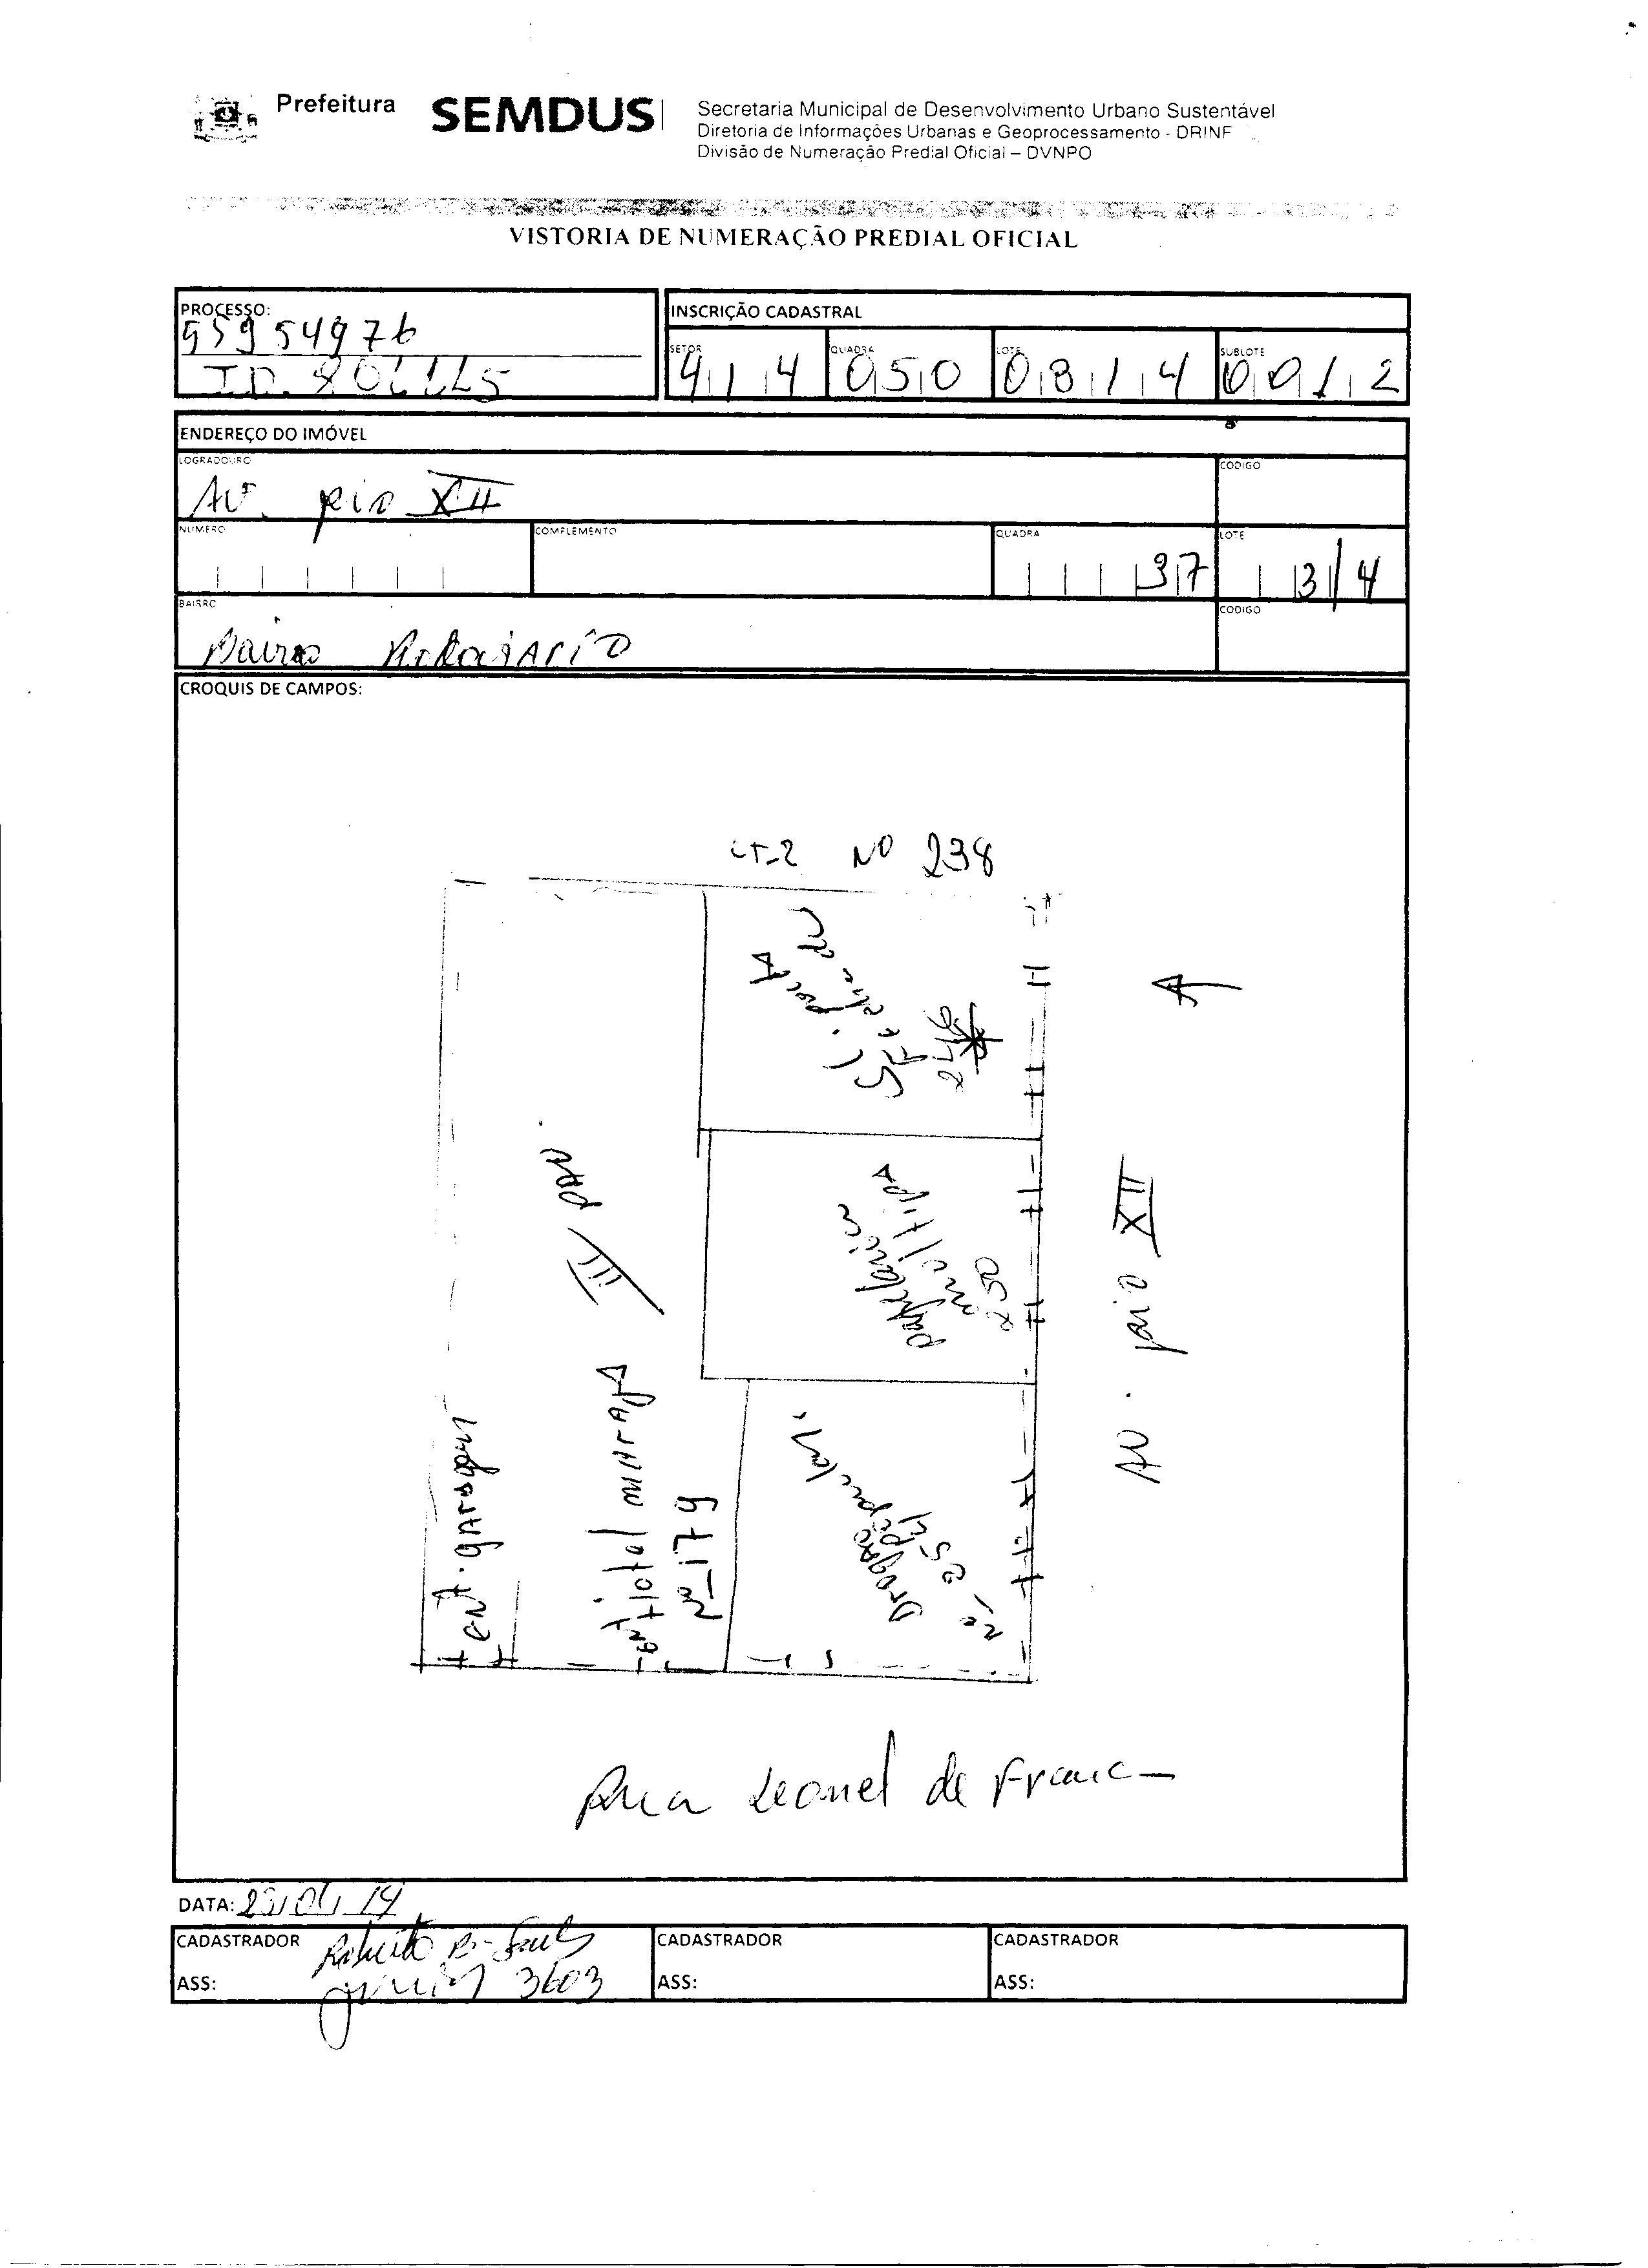 Prefeitura
SEMDUS
Secretaria Municipal de Desenvolvimento Urbano Sustentável
Diretoria de Informações Urbanas e Geoprocessamento - DRINF
Divisão de Numeração Predial Oficial – DVNPO
VISTORIA DE NUMERAÇÃO PREDIAL OFICIAL
PROCESSO:
55954976
INSCRIÇÃO CADASTRAL
SETOR
414
QUADRA
050
LOTE
0314
SUBLOTE
0012
ENDEREÇO DO IMÓVEL
LOGRADOURO
AV. pio XII
CODIGO
NUMERO
COMPLEMENTO
QUADRA
37
LOTE
3/4
BAIRRO
Bairro
CODIGO
CROQUIS DE CAMPOS:
LT-2 Nº 238
246
III PAV
papelaria
250
Hotel marajá
Nº 179
ent. garagem
Drogão popular
Nº 254
AV. pio XII
Rua Leonel de Franc
DATA: 23/04/14
CADASTRADOR
ASS:
3603
CADASTRADOR
ASS:
CADASTRADOR
ASS: